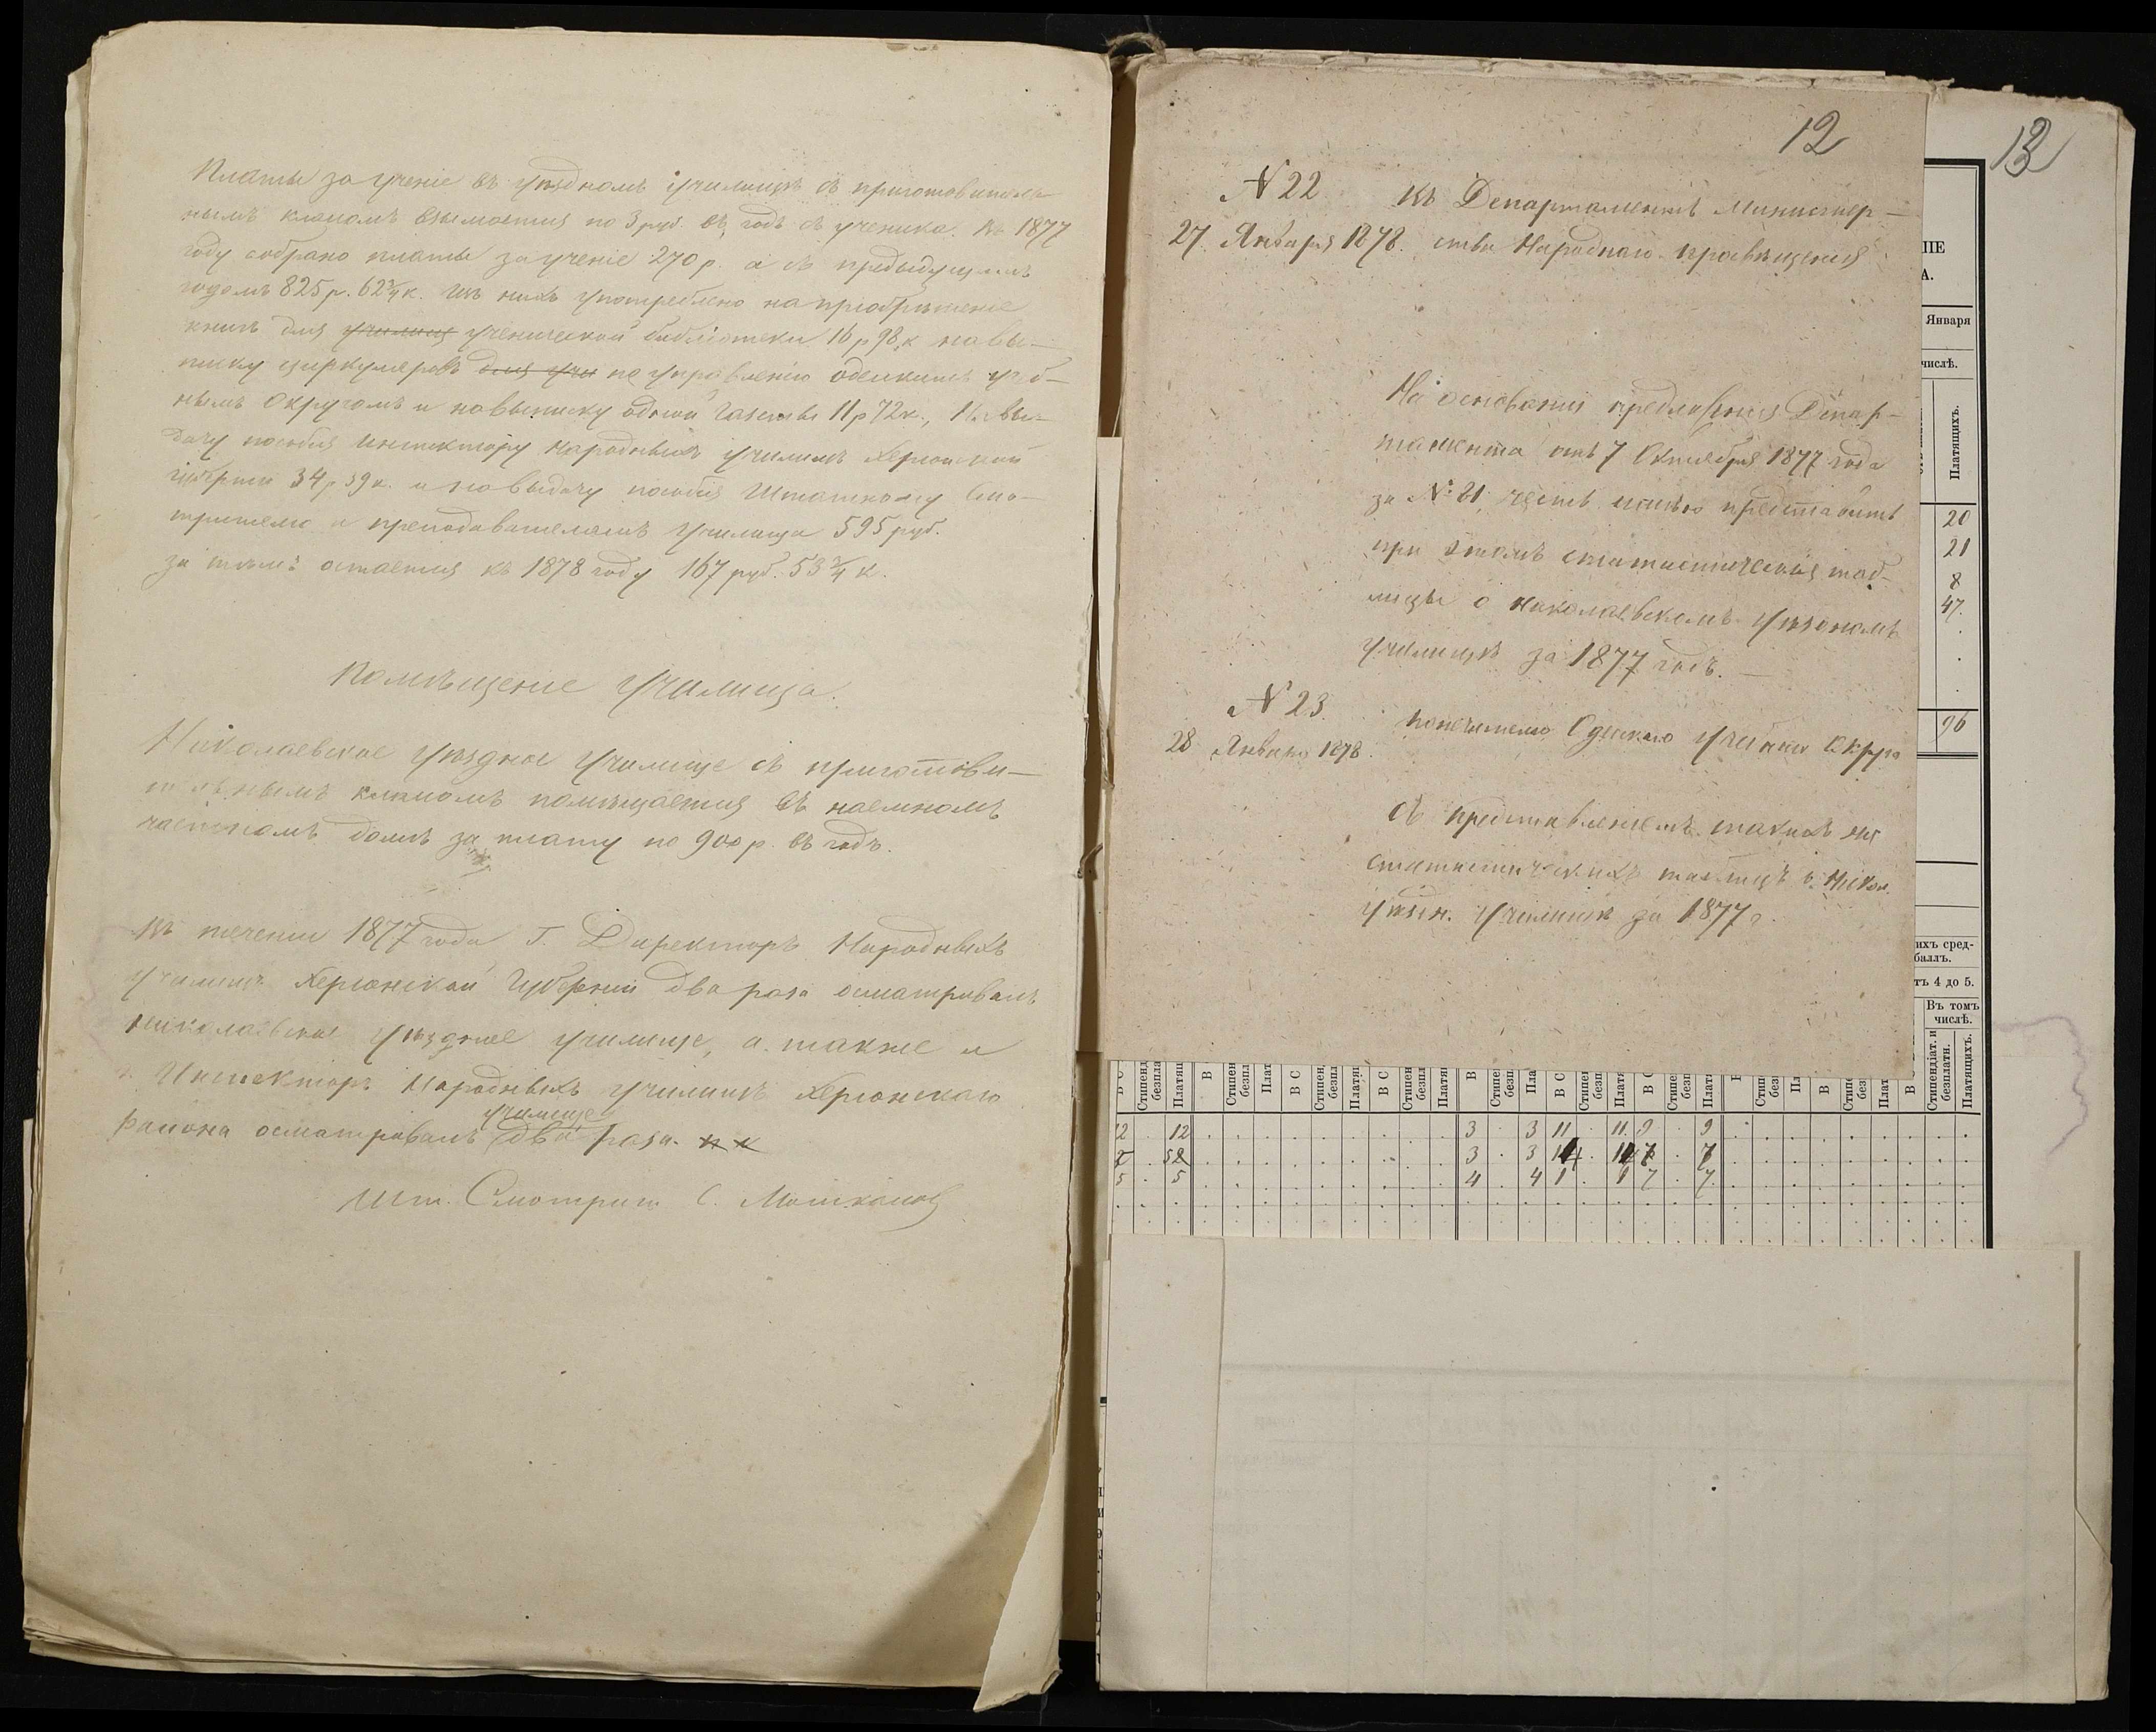 Платы за ученіе въ уѣздномъ училищѣ съ приготовитель-
нымъ классомъ взымается по 3 руб. въ годъ съ ученика. Въ 1877
году собрано платы за ученіе 270 р. а съ предыдущимъ
годомъ 825 р. 62¾ к. Изъ нихъ употреблено на пріобрѣтеніе
книгъ для училищ ученической библіотеки 16 р 98 к на вы-
писку циркуляровъ для учи по управленію одесскимъ учеб-
нымъ Округомъ и на выписку одной газеты 11 р 72 к.,
дачу пособія Инспектору Народныхъ училищъ Херсонской
губерніи 34 р 39 к. и на выдачу пособія Штатному Смо-
трителю и преподавателямъ училища 595 руб.
за тѣмъ остается къ 1878 году 167 руб. 53¾ к.
Помѣщеніе училища.
Николаевское уѣздное училище съ приготови-
тельнымъ классомъ помѣщается въ наемномъ
частномъ домѣ за плату по 900 р. въ годъ.
Въ теченіи 1877 года Г. Директоръ Народныхъ
училищъ Херсонской Губерніи два раза осматривалъ
николаевское уѣздное училище, а также и
г. Инспекторъ Народныхъ училищъ Херсонскаго
училище
района осматривалъ два раза.
Шт. Смотрит. С.
12
13
N 22
Въ Департаментъ Министер-
27. Января 1878.
ства Народнаго просвѣщенія
На основаніи предложенія Депар-
тамента отъ 7 Октября 1877 года
за № 21, честь имѣю представить
при этомъ статистическія таб-
лицы о Николаевскомъ уѣздномъ
училищѣ за 1877 годъ.
N 23.
28 Января 1878.
Попечителю Одесскаго учебнаго Округа
Съ представленіемъ такихъ же
статистическихъ таблицъ о Никол.
уѣздн. училищѣ за 1877 г.
ІЕ
А.
Января
числѣ.
Платящихъ.
20
21
8
47.
96
ихъ сред-
балль.
тъ 4 до 5.
Въ томъ
числѣ.
Стипендіат. и
безплатн.
Платящихъ.
12 12 3 3 11 11 9 9
3 3 7 7
5 5 4 4 1 1 7 7